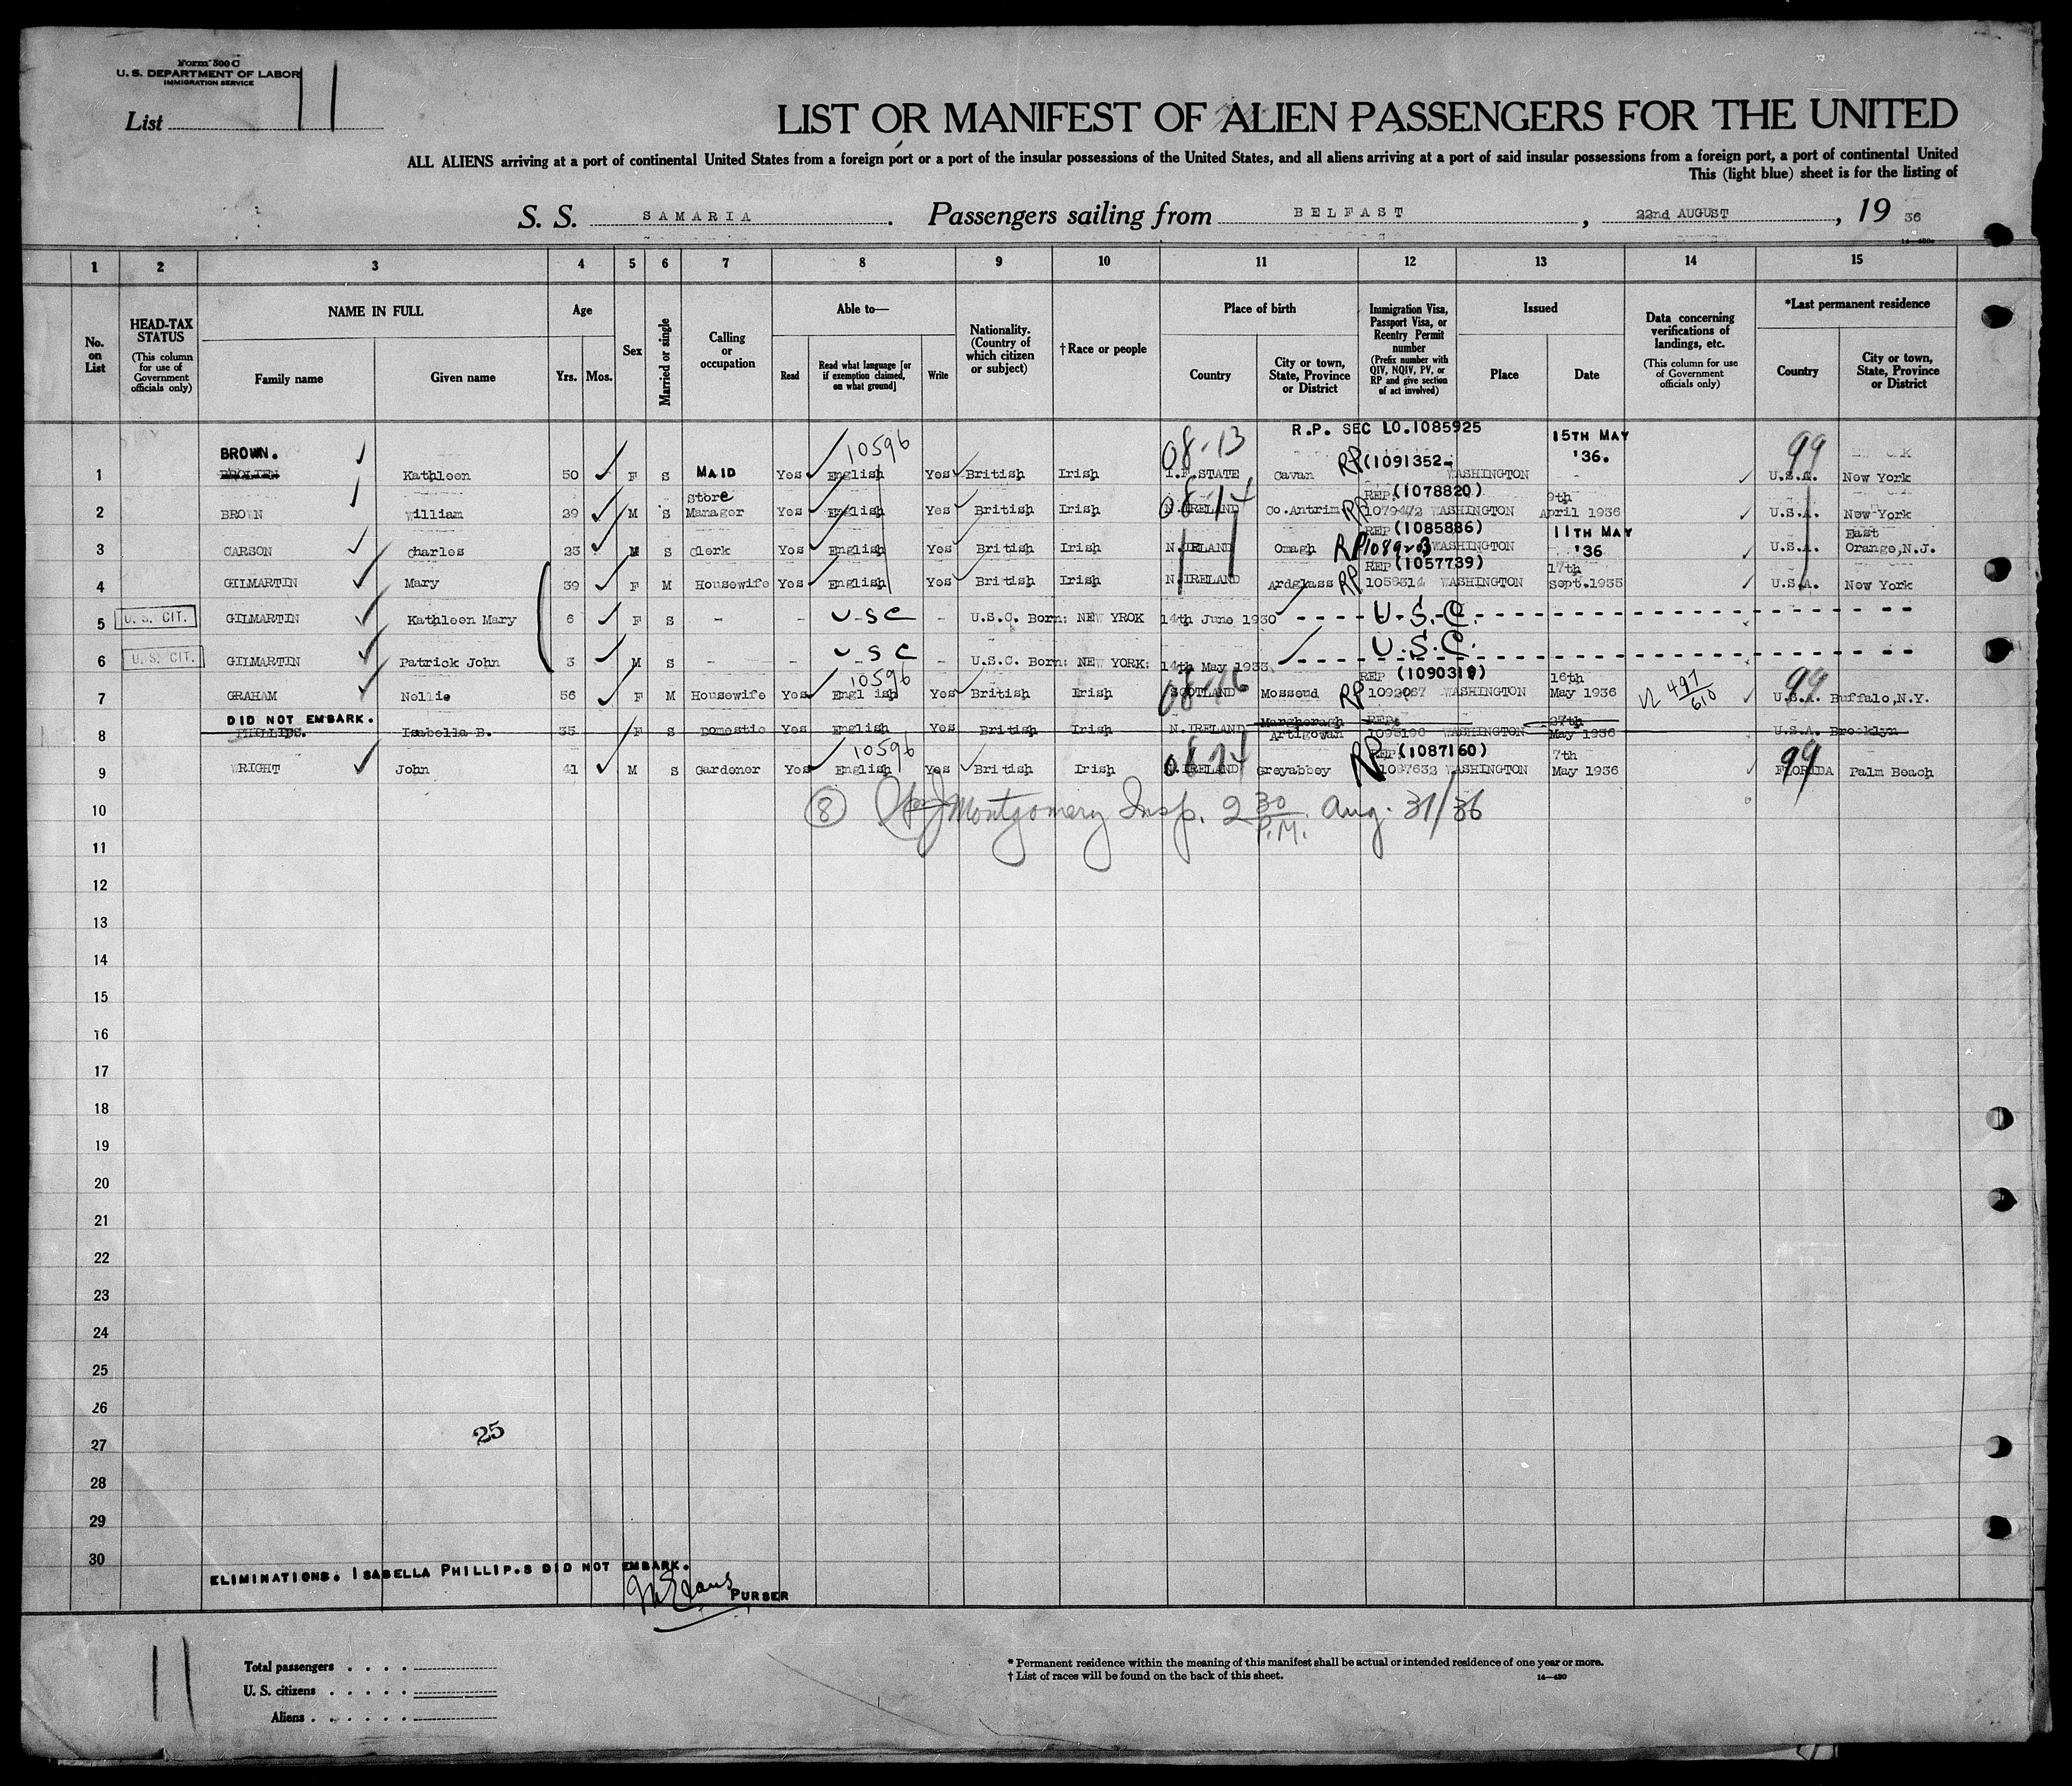 Form 500 C
U. S. DEPARTMENT OF LABOR
IMMIGRATION SERVICE
List 11
LIST OR MANIFEST OF ALIEN PASSENGERS FOR THE UNITED
ALL ALIENS arriving at a port of continental United States from a foreign port or a port of the insular possessions of the United States, and all aliens arriving at a port of said insular possessions from a foreign port, a port of continental United
This (light blue) sheet is for the listing of
S. S. SAMARIA . Passengers sailing from BELFAST , 22nd AUGUST , 19 36
1 2 3 4 5 6 7 8 9 10 11 12 13 14 15
No. on List
HEAD-TAX STATUS
(This column for use of Government officials only)
NAME IN FULL
Family name Given name
Age
Yrs. Mos.
Sex
Married or single
Calling or occupation
Able to—
Read Read what language [or if exemption claimed, on what ground] Write
Nationality. (Country of which citizen or subject)
†Race or people
Place of birth
Country City or town, State, Province or District
Immigration Visa, Passport Visa, or Reentry Permit number
(Prefix number with QIV, NQIV, PV, or RP and give section of act involved)
Issued
Place Date
Data concerning verifications of landings, etc.
(This column for use of Government officials only)
*Last permanent residence
Country City or town, State, Province or District
R.P. SEC LO.1085925 15TH MAY
BROWN. 10596 08-13 '36. 99
1 Kathleen 50 F S MAID Yes English Yes British Irish I.F.STATE Cavan RP (1091352- WASHINGTON U.S.A. New York
Store 08-14 REP (1078820) 9th
2 BROWN William 29 M S Manager Yes English Yes British Irish N.IRELAND Co.Antrim RP WASHINGTON April 1936 U.S.A. New York
REP (1085886) 11TH MAY East
3 CARSON Charles 23 M S Clerk Yes English Yes British Irish N.IRELAND Omagh RP WASHINGTON '36 U.S.A. Orange,N.J.
REP (1057739) 17th
4 GILMARTIN Mary 39 F M Housewife Yes English Yes British Irish N.IRELAND Ardglass RP 1058314 WASHINGTON Sept.1935 U.S.A. New York
5 U. S. CIT. GILMARTIN Kathleen Mary 6 F S - - U S C - U.S.C. Born: NEW YROK 14th June 1930 U.S.C.
6 U. S. CIT. GILMARTIN Patrick John 3 M S - - U S C - U.S.C. Born: NEW YORK: 14th May 1933 U.S.C.
10596 REP (1090319) 16th 99
7 GRAHAM Nellie 56 F M Housewife Yes English Yes British Irish SCOTLAND Mossend RP 1092067 WASHINGTON May 1936 VL 497/610 U.S.A. Buffalo,N.Y.
DID NOT EMBARK. Margheragh REP: 27th
8 PHILLIPS. Isabella B. 35 F S Domestic Yes English Yes British Irish N.IRELAND Artigowan 1095196 WASHINGTON May 1936 U.S.A. Brooklyn
10596 08 14 REP (1087160) 7th 99
9 WRIGHT John 41 M S Gardener Yes English Yes British Irish N.IRELAND Greyabbey RP 1087632 WASHINGTON May 1936 FLORIDA Palm Beach
10 (8) Montgomery Insp. 2 30 P.M. Aug. 31/36
11
12
13
14
15
16
17
18
19
20
21
22
23
24
25
26
25
27
28
29
30
ELIMINATIONS. ISABELLA PHILLIP.S DID NOT EMBARK.
PURSER
11
Total passengers
U. S. citizens
Aliens
* Permanent residence within the meaning of this manifest shall be actual or intended residence of one year or more.
† List of races will be found on the back of this sheet. 14—430